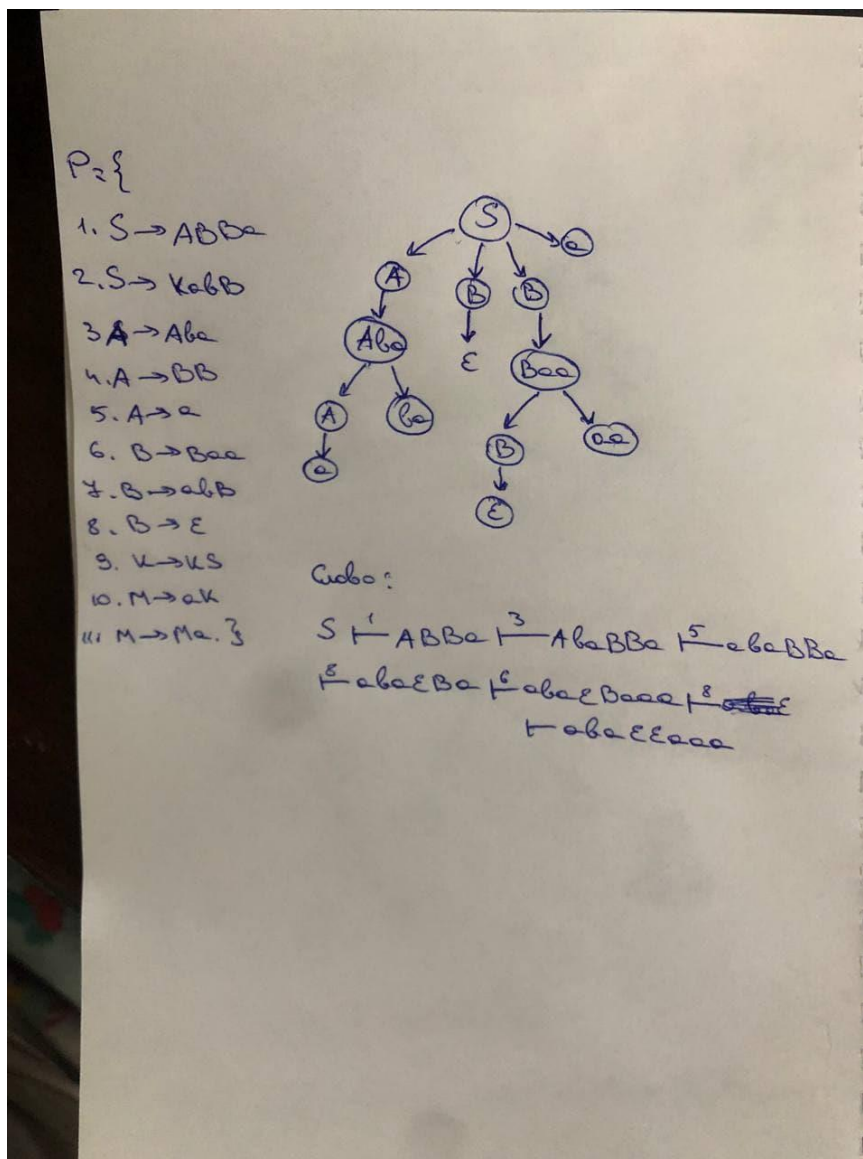 P={
1. S → ABBa
2. S → KabB
3 A → Aba
4. A → BB
5. A → a
6. B → Baa
7. B → abB
8. B → ε
9. K → KS
10. M → aK
11. M → Ma. }
S
A B B a
Aba ε Baa
A ba B aa
a ε
Слово:
S ⊢¹ ABBa ⊢³ AbaBBa ⊢⁵ abaBBa
⊢⁸ abaεBa ⊢⁶ abaεBaaa ⊢⁸ ε
⊢ abaεεaaa